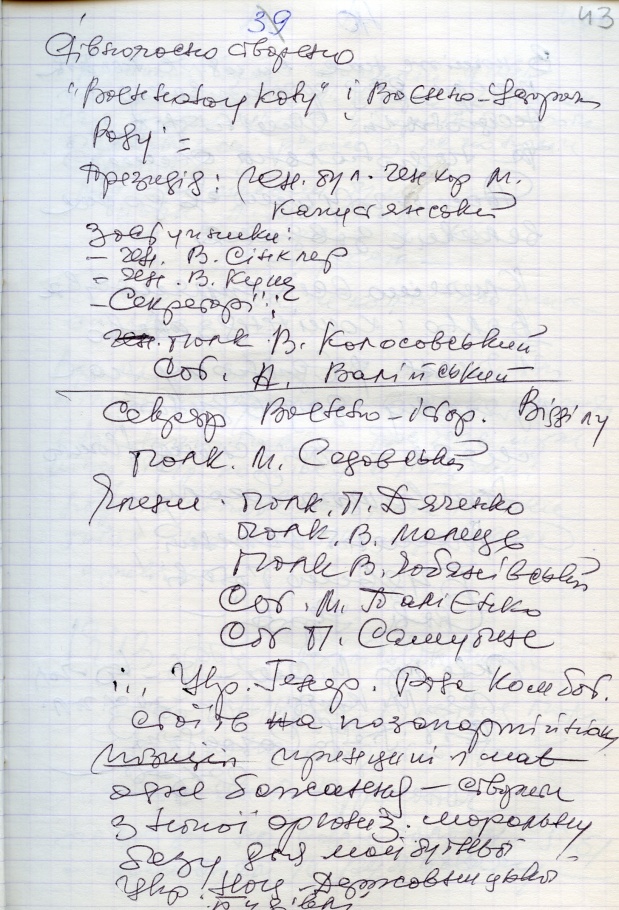 39
43
Рівночасно створено
"Воєннонаукову" і Воєнно-
Раду =
Президія: ген. ген кор М.
Капустянський
Заступники:
– ген. В. Сінклер
– ген. В. Кущ
– Секретарі:
полк В. Колосовський
Сот. А. Валійський
Секретар Воєнно-істор. Відділу
полк. М. Садовський
Члени: полк. П. Дяченко
полк. В. Малець
Полк В.
Сот. М. Палієнко
Сот П. Самутин
і.. Укр. Генер. Рада Комбат.
стоїть на позапартійній
позиції принципі і має
одне бажання – створити
з цієї організ. моральну
базу для майбутньої
Укр. Нац. Державницької